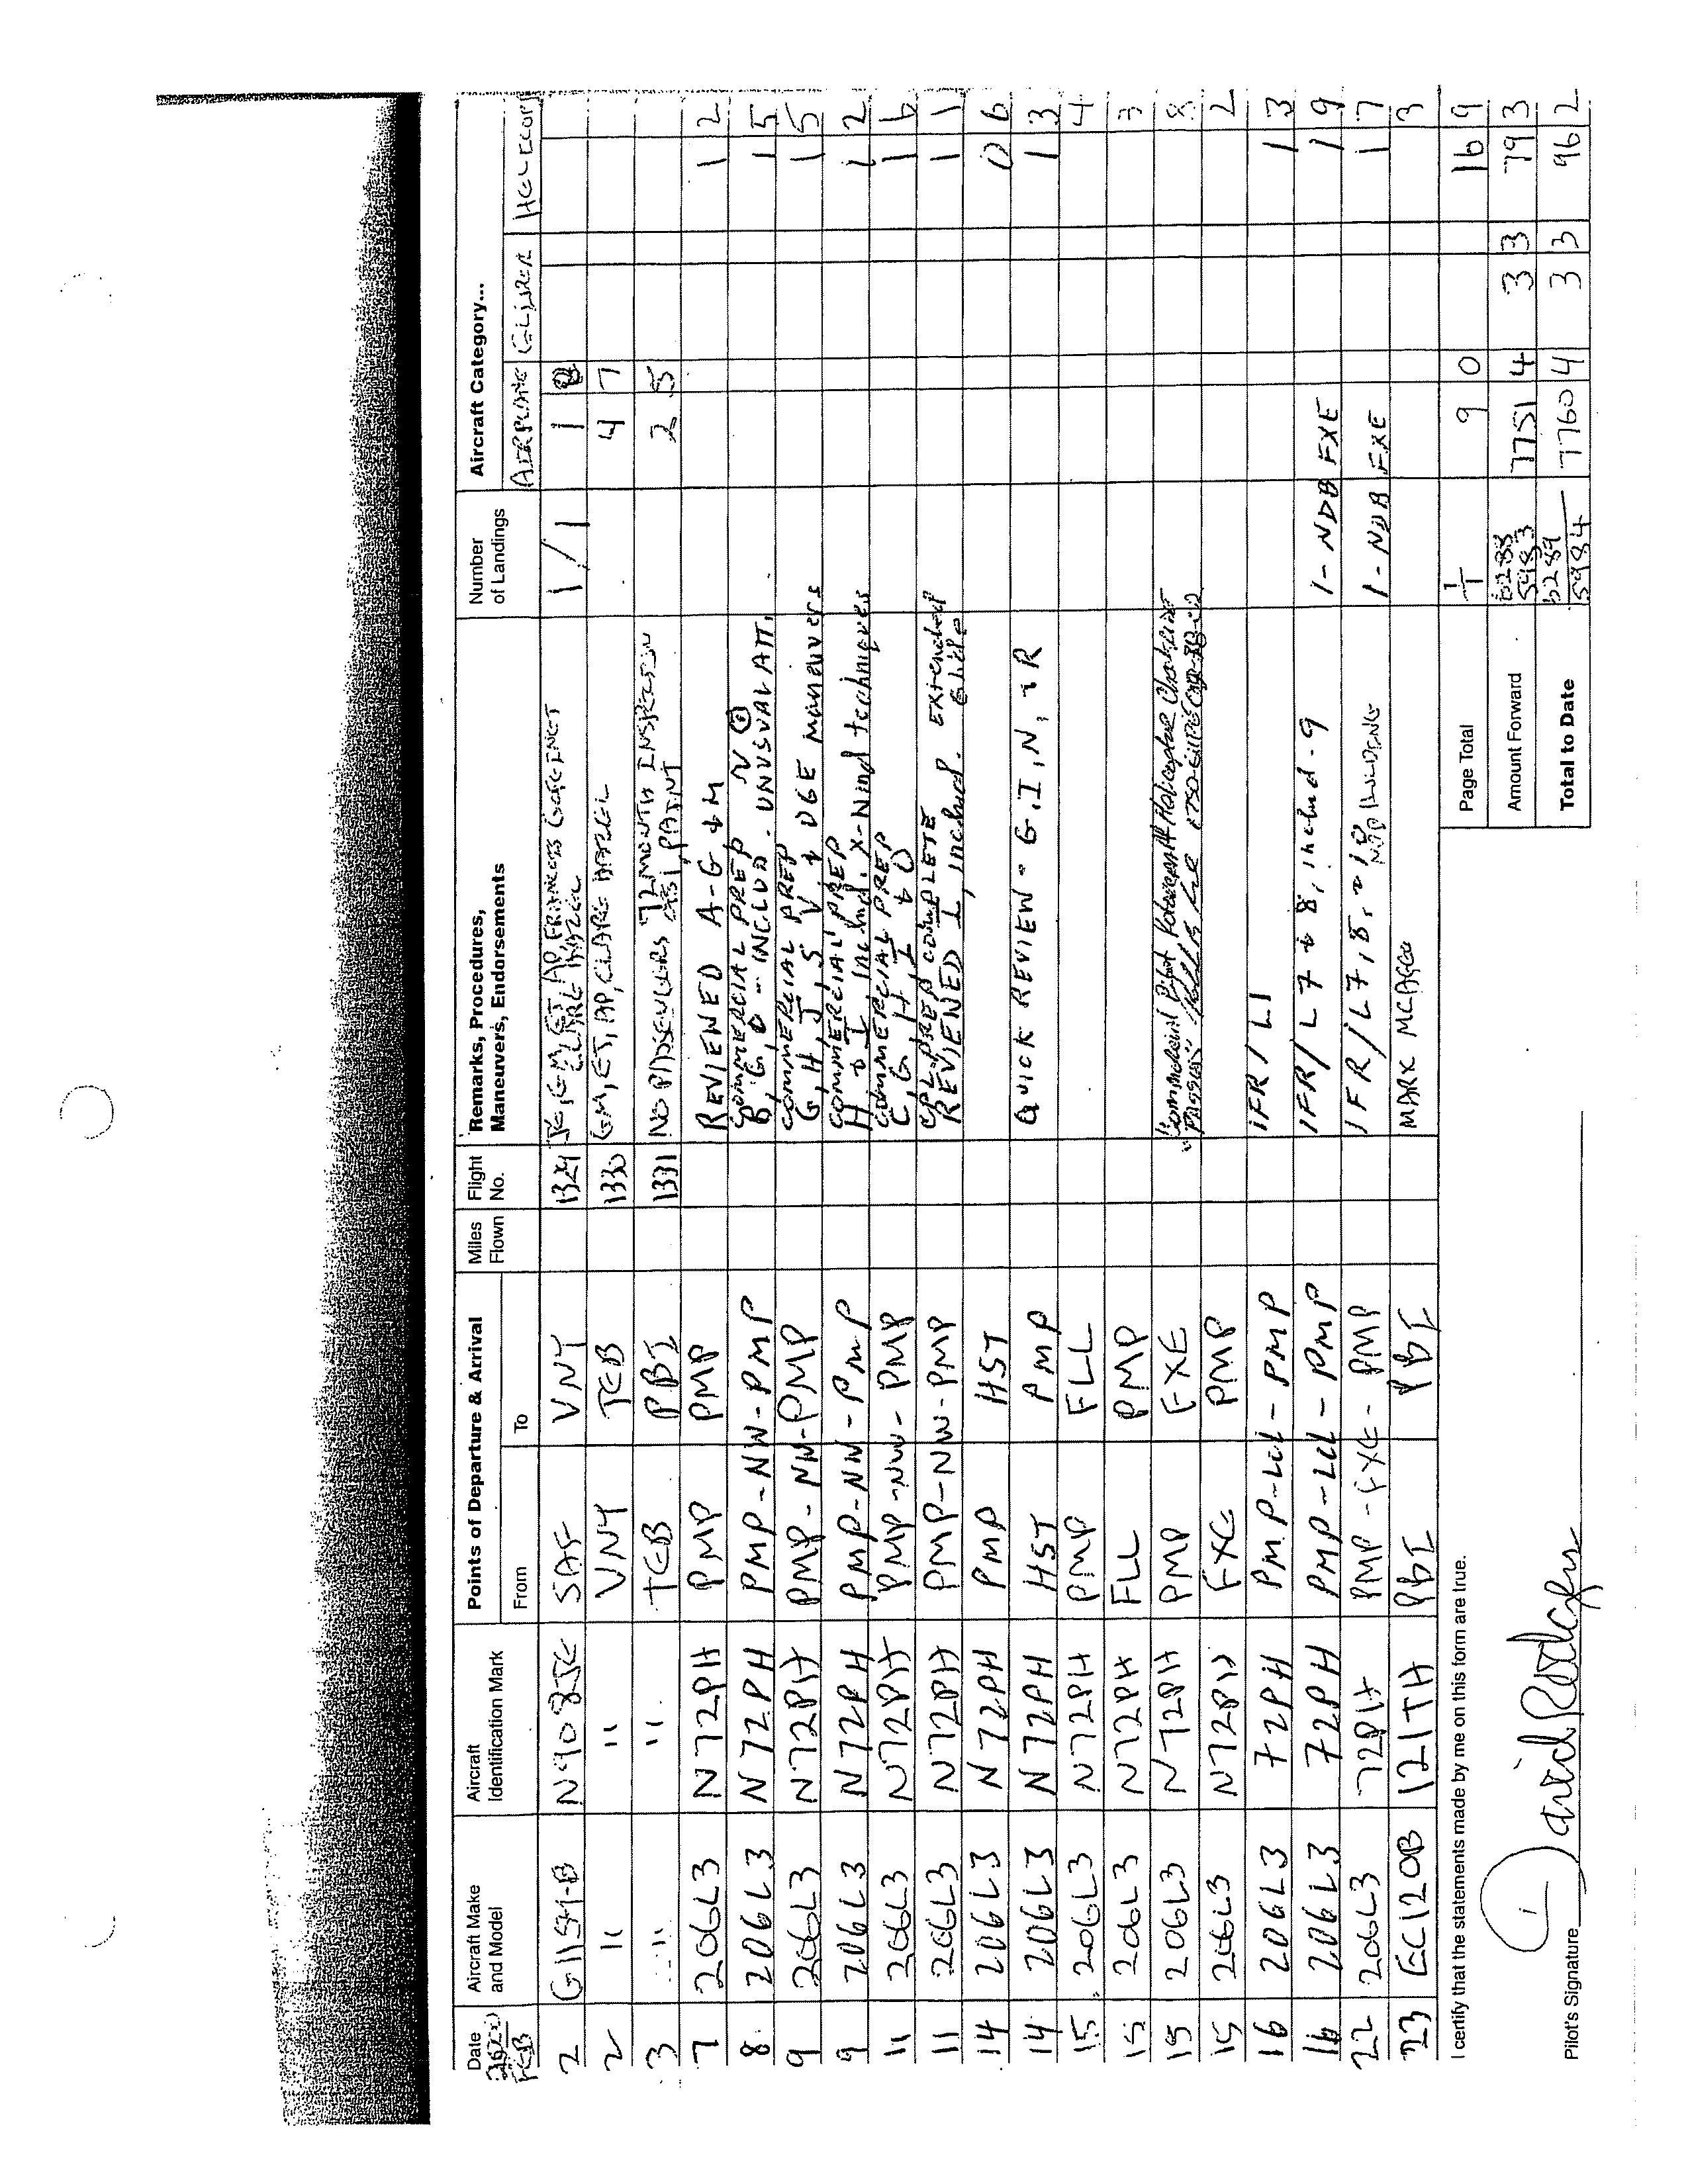 Date
2000
FEB
Aircraft Make
and Model
Aircraft
Identification Mark
Points of Departure & Arrival
From
To
Miles
Flown
Flight
No.
Remarks, Procedures,
Maneuvers, Endorsements
Number
of Landings
Aircraft Category...
AIRPLANE GLIDER HELICOPT
2 G1159B N908JE SAF VNY 1329 JE, GM, ET, AP, 1/1 1
2 " " VNY TEB 1330 GM, ET, AP, CLARE HAZEL 4 7
3 " " TEB PBI 1331 NO PASSENGERS 72 MONTH INSPECTION PAINT 2 5
7 206L3 N72PH PMP PMP REVIEWED A-G & M 1 2
8 206L3 N72PH PMP-NW-PMP COMMERCIAL PREP
B, G, O - INCLUD. UNUSUAL ATT. 1 5
9 206L3 N72PH PMP-NW-PMP COMMERCIAL PREP
G, H, J, S V & OGE maneuvers 1 5
9 206L3 N72PH PMP-NW-PMP COMMERCIAL PREP
H & I, Includ. X-Wind techniques 1 2
11 206L3 N72PH PMP-NW-PMP COMMERCIAL PREP
C, G, H, I & O 1 6
11 206L3 N72PH PMP-NW-PMP CPL-PREP COMPLETE
REVIEWED I, Includ. Extended Glide 1 1
14 206L3 N72PH PMP HST 0 6
14 206L3 N72PH HST PMP QUICK REVIEW - G, I, N, & R 1 3
15 206L3 N72PH PMP FLL 4
15 206L3 N72PH FLL PMP 3
15 206L3 N72PH PMP FXE Commercial Pilot Helicopter Checkride
8
15 206L3 N72PH FXE PMP 2
16 206L3 72PH PMP-Lcl-PMP IFR/L1 1 3
16 206L3 72PH PMP-Lcl-PMP IFR/L 7 & 8, includ. 9 1-NDB FXE 1 9
22 206L3 72PH PMP-FXE-PMP IFR/L7, 8, 10 1-NDB FXE 1 7
23 EC120B 121TH PBI PBI MARK 3
I certify that the statements made by me on this form are true.
Page Total 1/1 9 0 16 9
Amount Forward 6288 5983 7751 4 3 3 79 3
Total to Date 6289 5984 7760 4 3 3 96 2
Pilot's Signature David Rodgers